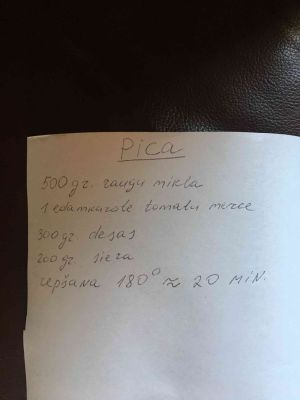 Pica
500 gr. raugu mikla
1 ēdamkarote tomatu merce
300 gr desas
200 gr siera
cepšana 180° ≈ 20 MIN.